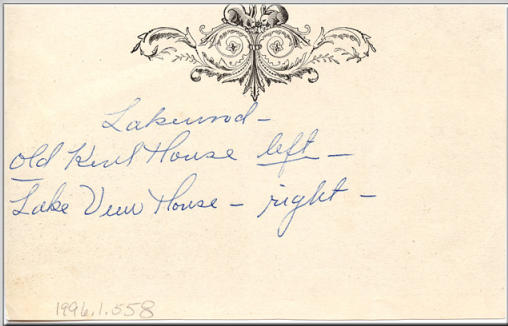 Lakewood-
Old Kent House left -
Lake View House - right -
1996.1.558